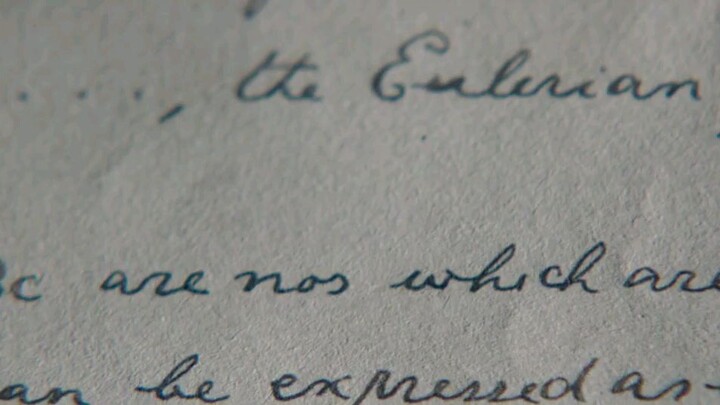 ...., the Eulerian
&c are nos which are
can be expressed as